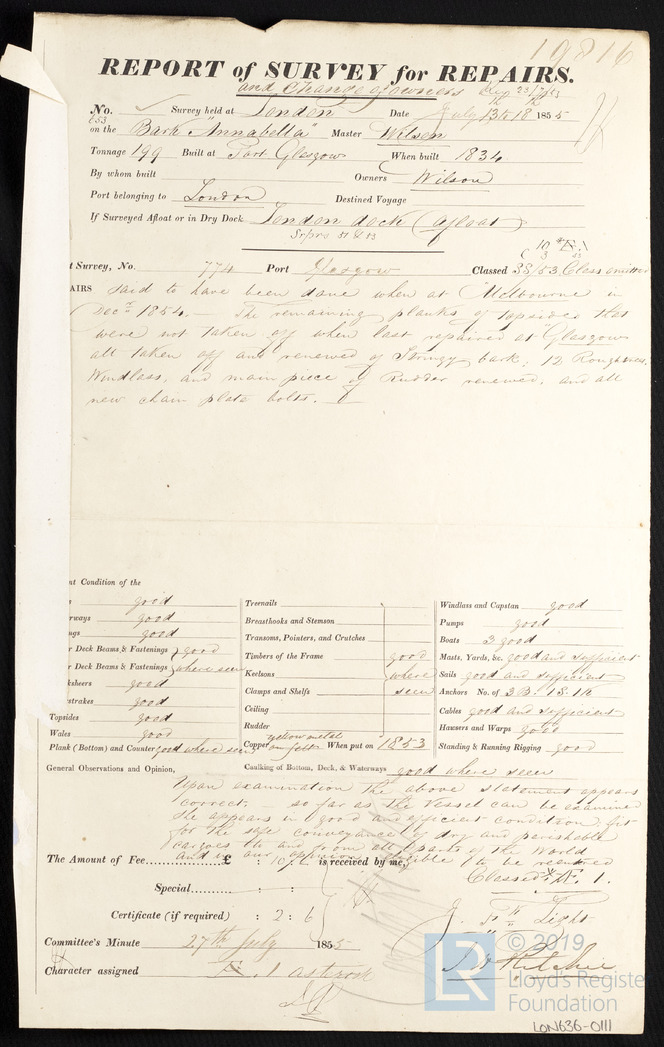 19816
REPORT of SURVEY for REPAIRS.
and Change of owners
No. 153 Survey held at London Date July 13th 18 1855
on the Bark "Annabella" Master Wilson
Tonnage 199 Built at Port Glasgow When built 1834
By whom built Owners Wilson
Port belonging to London Destined Voyage
If Surveyed Afloat or in Dry Dock London dock (Afloat)
Srprs 51 & 53
t Survey, No. 774 Port Glasgow Classed SS/53 Class omitted
AIRS Said to have been done when at Melbourne in
Decr 1854. — The remaining planks of topsides that
were not taken off when last repaired at Glasgow
all taken off and renewed of Stringy bark, 12 Roughtrees,
Windlass, and main piece of Rudder renewed, and all
new chain plate bolts.
nt Condition of the
s good
rways good
ngs good
r Deck Beams & Fastenings good
r Deck Beams & Fastenings where seen
ksheers good
rstrakes good
Topsides good
Wales good
Plank (Bottom) and Counter good where seen
Treenails
Breasthooks and Stemson
Transoms, Pointers, and Crutches
Timbers of the Frame good
Keelsons where
Clamps and Shelfs seen
Ceiling
Rudder
yellow metal
Copper on felt When put on 1853
Caulking of Bottom, Deck, & Waterways good where seen
Windlass and Capstan good
Pumps good
Boats 3 good
Masts, Yards, &c. good and sufficient
Sails good and sufficient
Anchors No. of 3B. 1S. 1K
Cables good and sufficient
Hawsers and Warps good
Standing & Running Rigging good
General Observations and Opinion,
Upon examination the above statement appears
correct — so far as the Vessel can be examined
she appears in good and efficient condition, fit
for the safe conveyance of dry and perishable
cargoes to and from all parts of the World
and in our opinion eligible to be
Classed *Æ 1.
The Amount of Fee £ : 10 : is received by me,
Special : :
Certificate (if required) : 2 : 6
J. Light
Ritchie
Committee's Minute 27th July 1855
Character assigned Æ 1 asterisk
© 2019
LR
Lloyd's Register
Foundation
LON636-0111